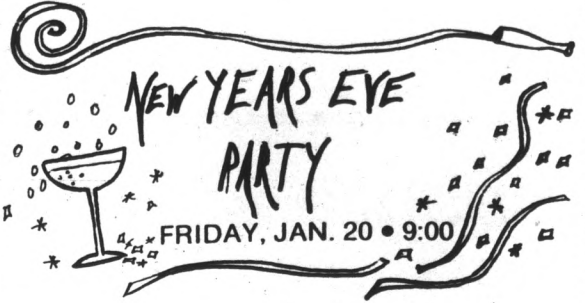 NEW YEARS EVE
PARTY
FRIDAY, JAN. 20 • 9:00